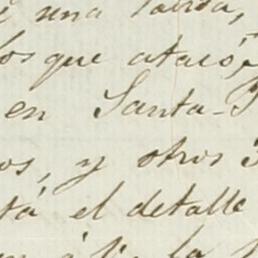 e una
los que atacó,
en Santa-
os, y otros
tá el detalle
la